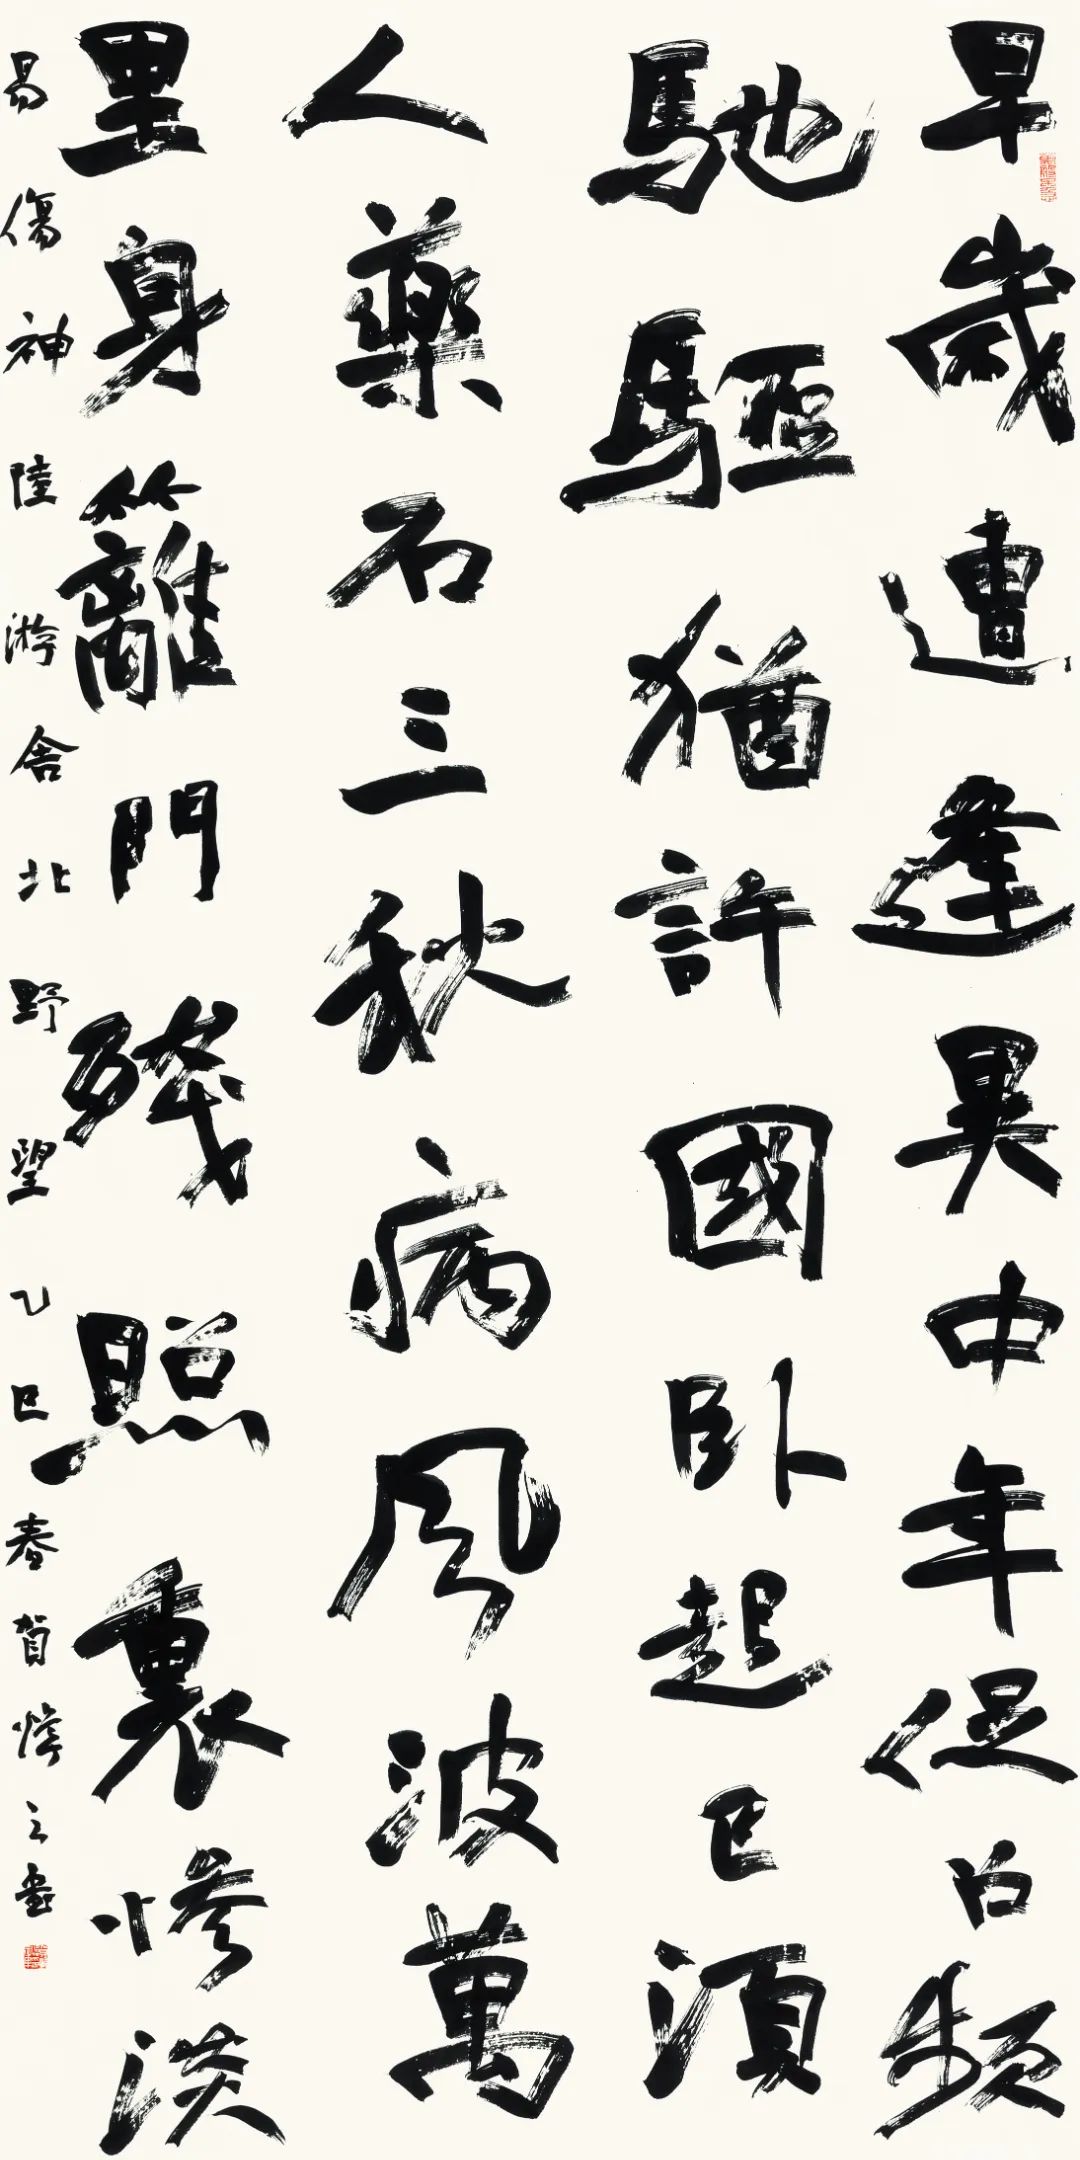 早歲遭逢異中年促召頻
馳驅猶許國卧起已須
人藥石三秋病風波萬
里身籬門殘照裏慘淡
易傷神陸游舍北野望乙巳春賀煒之書